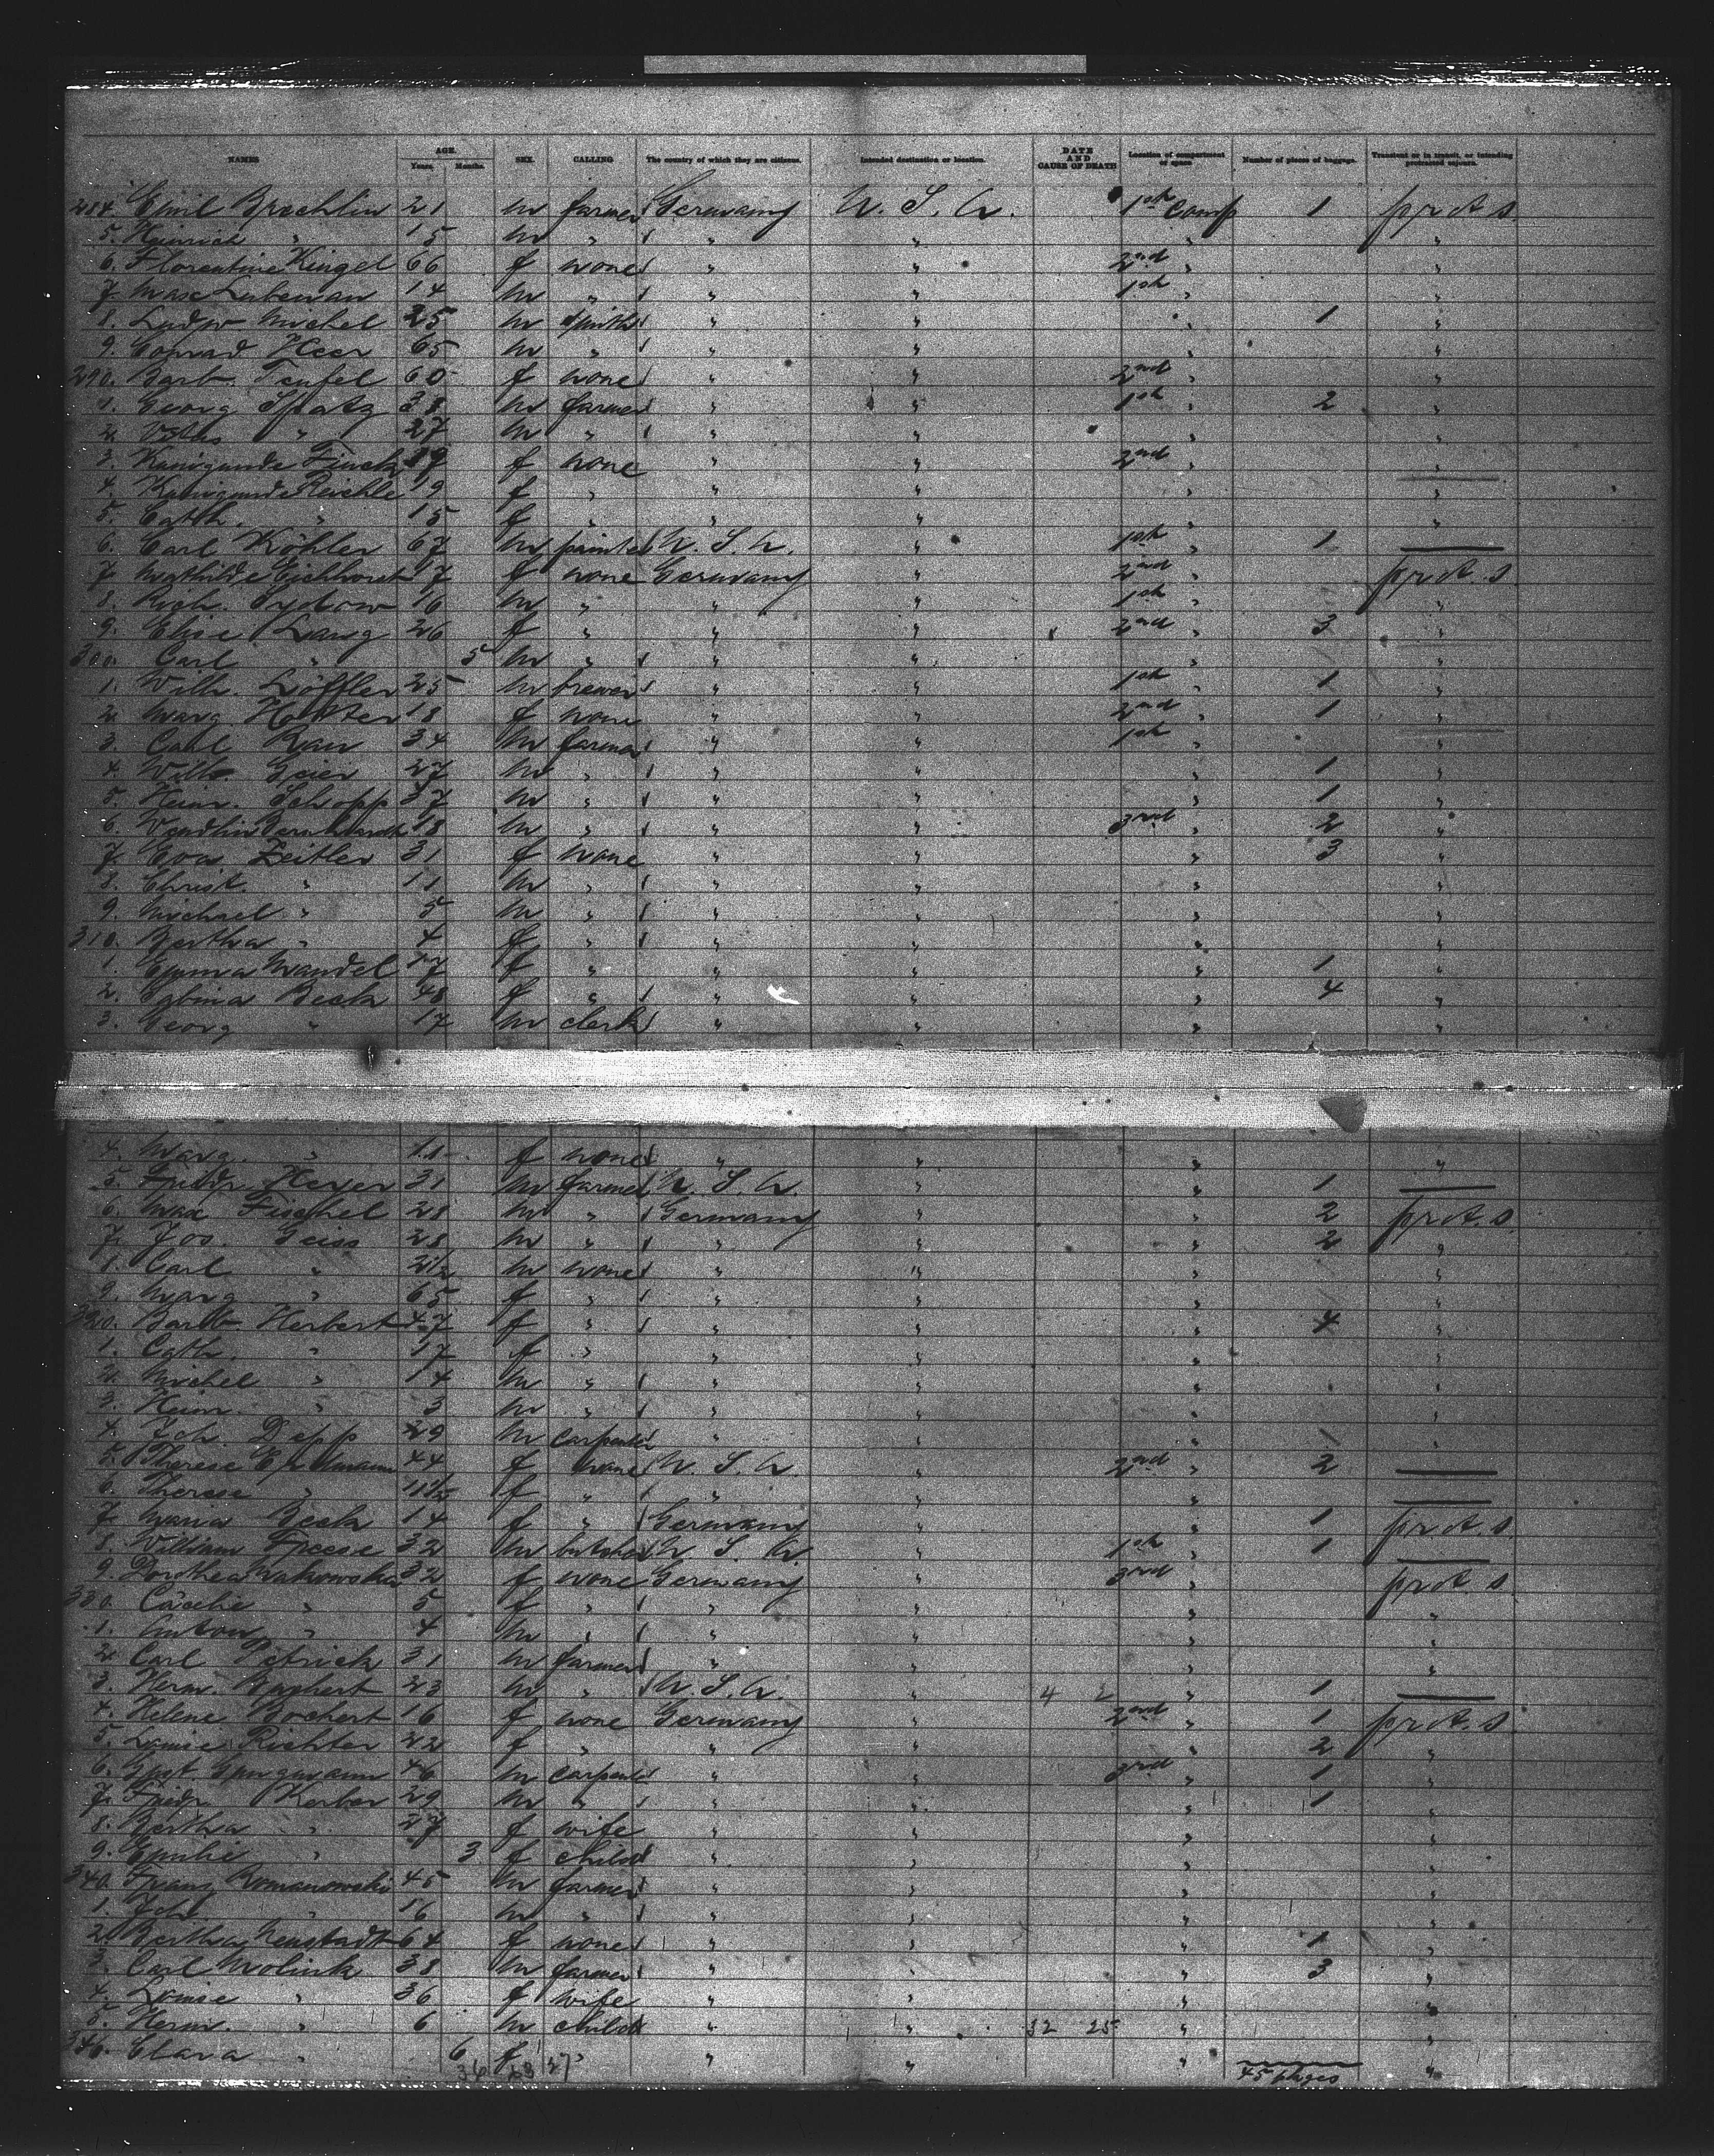 NAMES AGE. Years. Months. SEX. CALLING The country of which they are citizens. Intended destination or location. DATE AND CAUSE OF DEATH Location of compartment or space Number of pieces of baggage. Transient or in transit, or intending protracted sojourn.
284. Emil Brechlin 21 m farmer Germany U. S. A. 1st Comp 1 prot. s.
5. Heinrich " 15 m " " " " "
6. Florentine Kingel 66 f none " " 2nd " "
7. Max Lubenau 14 m " " " 1st " "
8. Ludw. Michel 25 m smith " " " 1 "
9. Conrad Heer 65 m " " " " "
290. Barb. Teufel 60 f none " " 2nd " "
1. Georg Spatz 38 m farmer " " 1st " 2 "
2. " 27 m " " " " "
3. Kunigunde Finck f none " " 2nd " "
4. Kunigunde Reichle 19 f " " " " "
5. Cath. " 15 f " " " " "
6. Carl Köhler 67 m painter U. S. A. " 1st " 1
7. Mathilde Eichhorst 17 f none Germany " 2nd " prot. s.
8. Rich. Sydow 16 m " " " 1st " "
9. Elise Lang 26 f " " " 2nd " 3 "
300. Carl " 5 m " " " " "
1. Wilh. Löffler 25 m brewer " " 1st " 1 "
2. Marg. 18 f none " " 2nd " 1 "
3. Carl Rau 34 m farmer " " 1st " "
4. Wilh. Geier 27 m " " " " 1 "
5. Heinr. Schopp 37 m " " " " 1 "
6. Wendlin 18 m " " " 3rd " 2 "
7. Eva Zeitler 31 f none " " " 3 "
8. Christ. " 11 m " " " " "
9. Michael " 5 m " " " " "
310. Bertha " 4 f " " " " "
1. Emma Mandel 17 f " " " " 1 "
2. Beck 48 f " " " " 4 "
3. Georg " 17 m clerk " " " "
4. Marg. " 11 f none " " " "
5. Friedr. Heyer 31 m farmer U. S. A. " " 1
6. Max Fischel 28 m " Germany " " 2 prot. s.
7. Jos. Geiss 28 m " " " " 2 "
8. Carl " 2 1/2 m none " " " "
9. Marg. " 65 f " " " " "
320. Barb. Herbert 47 f " " " " 4 "
1. Cath. " 17 f " " " " "
2. Michel " 14 m " " " " "
3. Heinr. " 3 m " " " " "
4. Joh. Depp 29 m carpenter " " " "
5. Therese 44 f none U. S. A. " 2nd " 2
6. Therese " 11 1/2 f " " " "
7. Maria Beck 14 f " Germany " " 1 prot. s.
8. William Freese 32 m butcher U. S. A. " 1st " 1
9. Dorothea Makowska 32 f none Germany " 3rd " prot. s.
330. Cäcilie " 5 f " " " " "
1. Anton " 4 m " " " " "
2. Carl Petrick 31 m farmer " " " "
3. Herm. 23 m " U. S. A. " 4 2 " 1
4. Helene Bochert 16 f none Germany " 2nd " 1 prot. s.
5. Louise Richter 22 f " " " " 2 "
6. Gust. 46 m carpenter " " 3rd " 1 "
7. Friedr. Kerber 29 m " " " " 1 "
8. Bertha " 27 f wife " " " "
9. Emilie " 3 f child " " " "
340. Franz Romanowski 45 m farmer " " " "
1. Joh. " 16 m " " " " "
2. Bertha Neustadt 64 f none " " " 1 "
3. Carl Wolink 38 m farmer " " " 3 "
4. Louise " 36 f wife " " " "
5. Herm. " 6 m child " " 32 25 " "
346. Clara " 6 f " " " " "
36 63 27 45 pieces